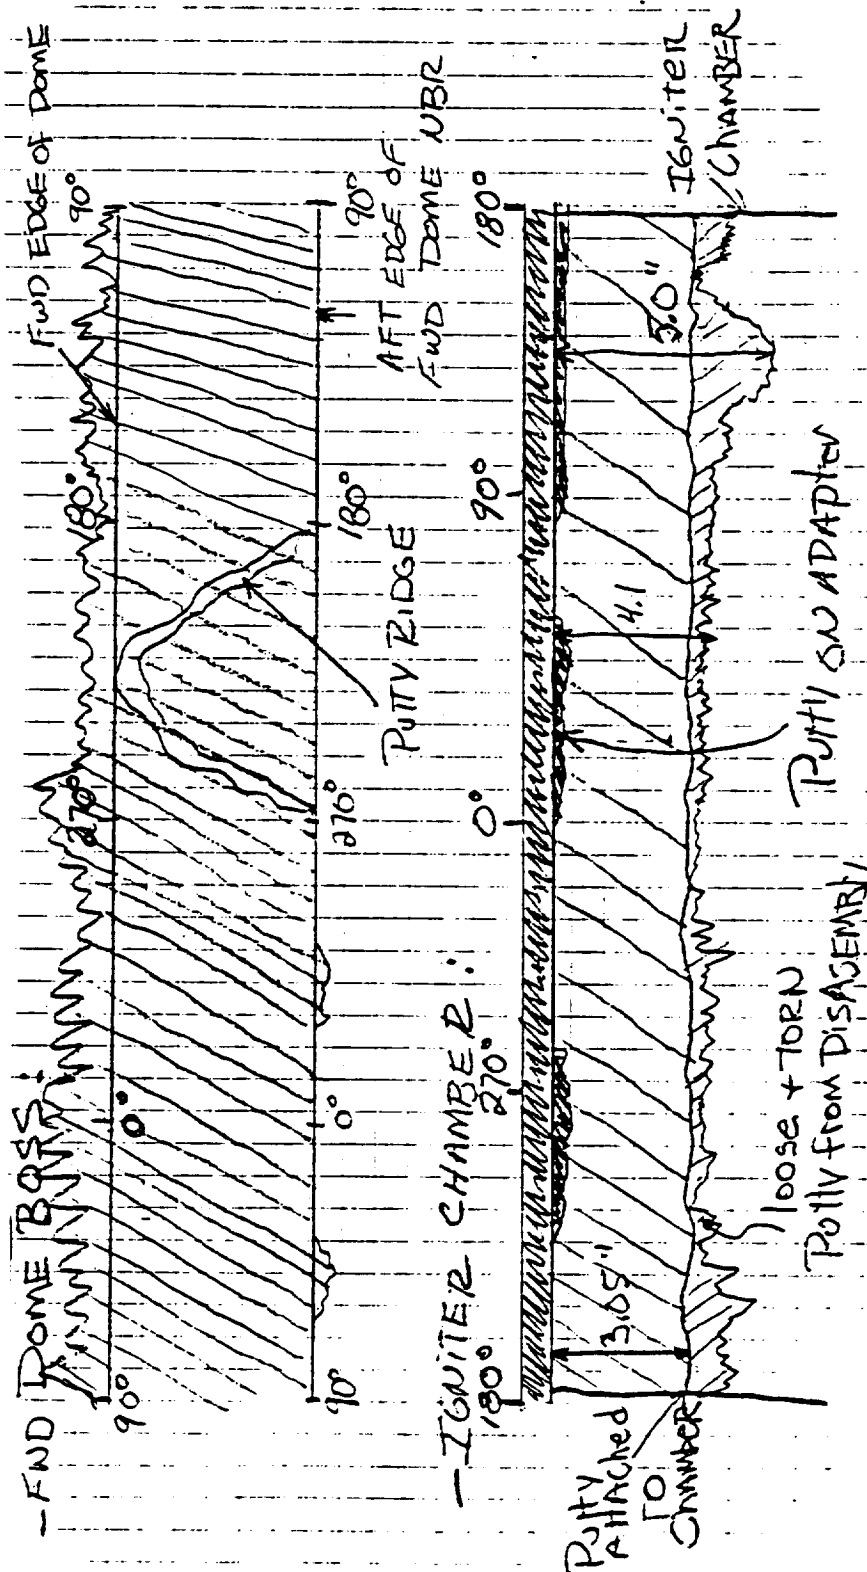 - FWD DOME BOSS:
FWD EDGE OF DOME
90°
0°
270°
180°
90°
90°
0°
270°
180°
90°
PUTTY RIDGE
AFT EDGE OF
FWD DOME NBR
- IGNITER CHAMBER:
180°
270°
0°
90°
180°
3.05"
4.1
5.0"
Putty
Attached
TO
Chamber
loose + TORN
Putty from DISASEMBly
Putty ON ADAPter
IGNiter
Chamber